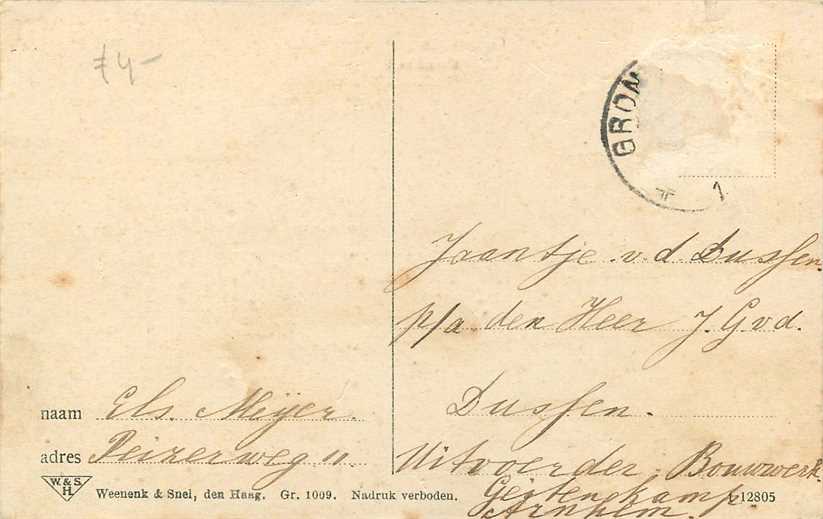 £4-
GRON
1
naam Els. Meijer.
adres Peizerweg 11
W.&S.
H
Weenenk & Snel, den Haag. Gr. 1009. Nadruk verboden.
Jaantje v. d. Dussen.
p/a den Heer J. G. v d.
Dussen.
Uitvoerder Bouwwerk
Geitenkamp
Arnhem.
12805